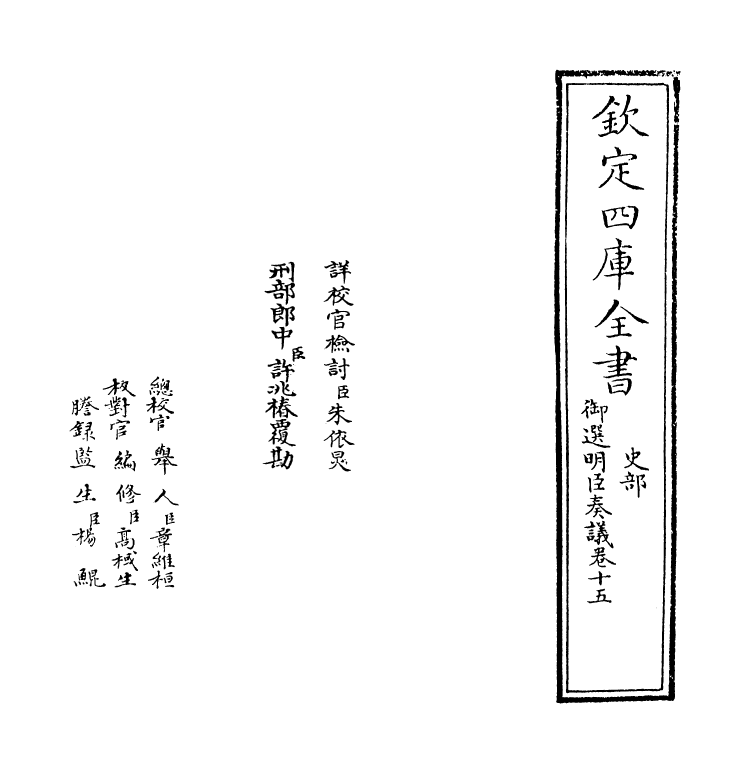 欽定四庫全書
史部
御選明臣奏議卷十五
詳校官檢討臣朱依炅
刑部郎中臣許兆椿覆勘
總校官舉人臣章維桓
校對官編修臣高棫生
謄録監生臣楊鯤